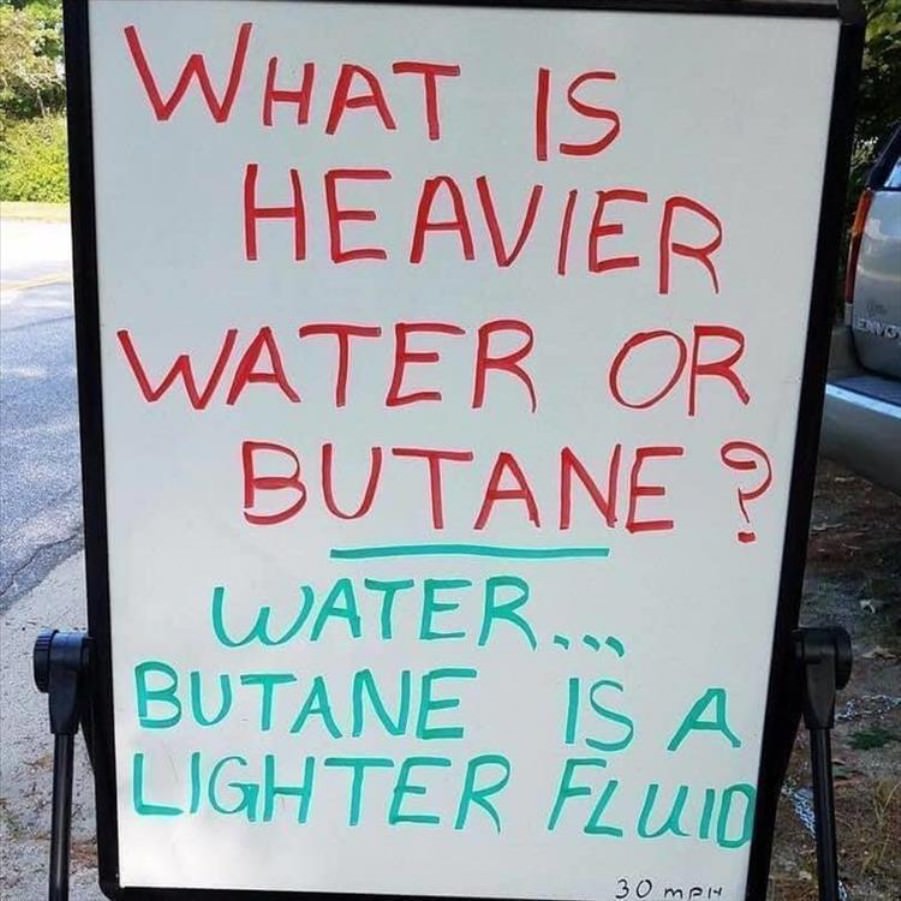 WHAT IS
HEAVIER
WATER OR
BUTANE?
WATER...
BUTANE IS A
LIGHTER FLUID
30 MPH
ENVOY